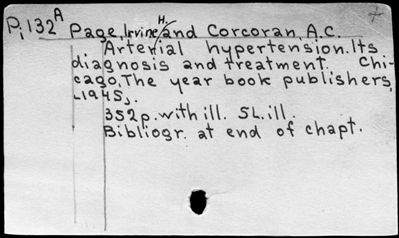 Pi132A Page, Irvine H. and Corcoran, A.C.
Arterial hypertension. Its
diagnosis and treatment. Chi-
cago, The year book publishers,
[1945].
352p. with ill. SL. ill.
Bibliogr. at end of chapt.